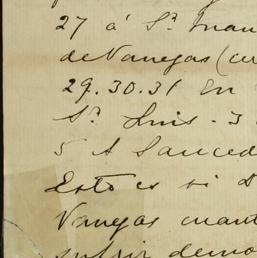 27 á Sr. Man
de Vanegas (cu
29. 30. 31 En
Sn. Luis. 3
5 A Sauced
Esto es si s
Vanegas cuant
sufrir demo